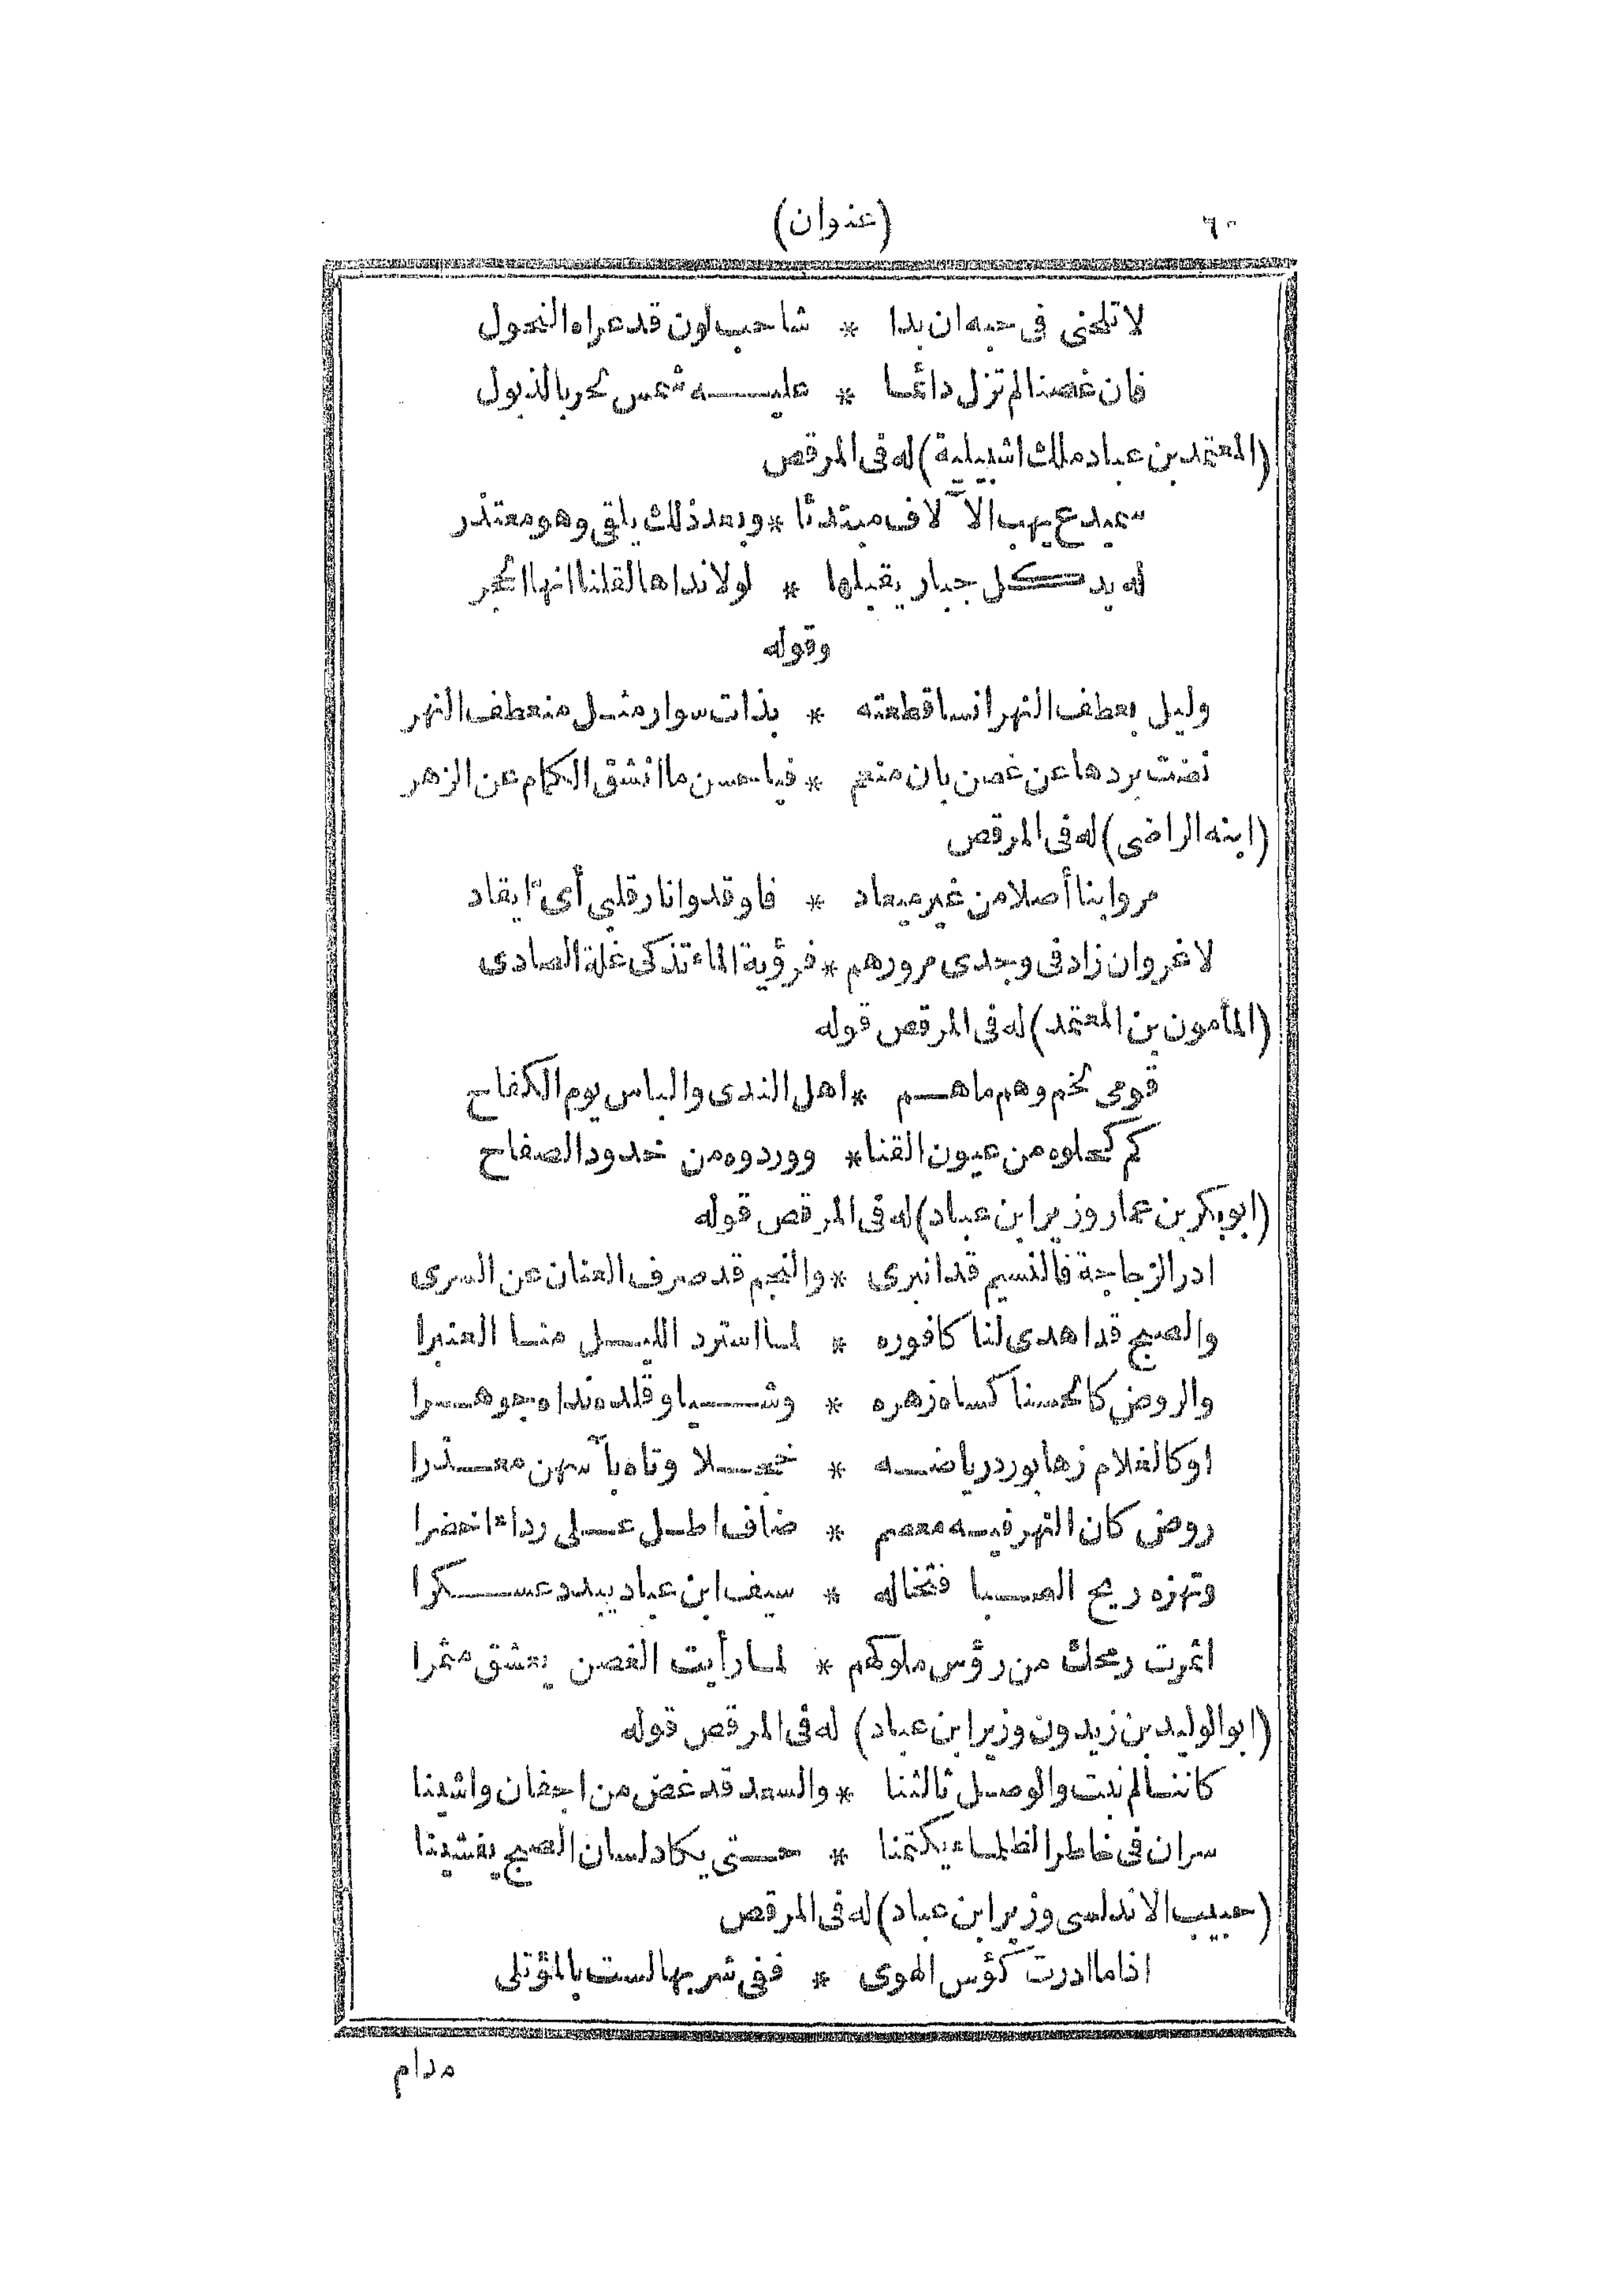 ٦٠
(عنوان)
لا تلحنى فى حبه ان بدا * شاحب لون قد عراه النحول
فان غصنا لم تزل دائما * عليه شمس لحر بالذبول
(المعتمد بن عباد ملك اشبيلية) له فى المرقص
سميدع يهب الآلاف مبتدئا * وبعد ذلك يلقى وهو معتذر
له يد كل جبار يقبلها * لولا نداها لقلنا انها الحجر
وقوله
وليل بعطف النهر انسا قطعته * بذات سوار مثل منعطف النهر
نضت بردها عن غصن بان منعم * فيا حسن ما انشق الكمام عن الزهر
(ابنه الراضى) له فى المرقص
مروا بنا أصلا من غير ميعاد * فاوقدوا نار قلبى أىّ ايقاد
لا غرو ان زاد فى وجدى مرورهم * فرؤية الماء تذكى غلة الصادى
(المأمون بن المعتمد) له فى المرقص قوله
قومى لخم وهم ما هم * اهل الندى والباس يوم الكفاح
كم كحلوه من عيون القنا * ووردوه من خدود الصفاح
(ابو بكر بن عمار وزير ابن عباد) له فى المرقص قوله
ادر الزجاجة فالنسيم قد انبرى * والنجم قد صرف العنان عن السرى
والصبح قد اهدى لنا كافوره * لما استرد الليل منا العنبرا
والروض كالحسنا كساه زهره * وشيا وقلده نداه جوهرا
او كالغلام زها بورد رياضه * خجلا وتاه بآسهن معذرا
روض كان النهر فيه معصم * ضاف اطل على رداء اخضرا
وتهزه ريح الصبا فتخاله * سيف ابن عباد يبدد عسكرا
اثمرت رمحك من رؤس ملوكهم * لما رأيت الغصن يعشق مثمرا
(ابو الوليد بن زيدون وزير ابن عباد) له فى المرقص قوله
كاننا لم نبت والوصل ثالثنا * والسعد قد غض من اجفان واشينا
سران فى خاطر الظلماء يكتمنا * حتى يكاد لسان الصبح يفشينا
(حبيب الاندلسى وزير ابن عباد) له فى المرقص
اذا ما ادرت كؤس الهوى * ففى شربها لست بالمؤتلى
مدام